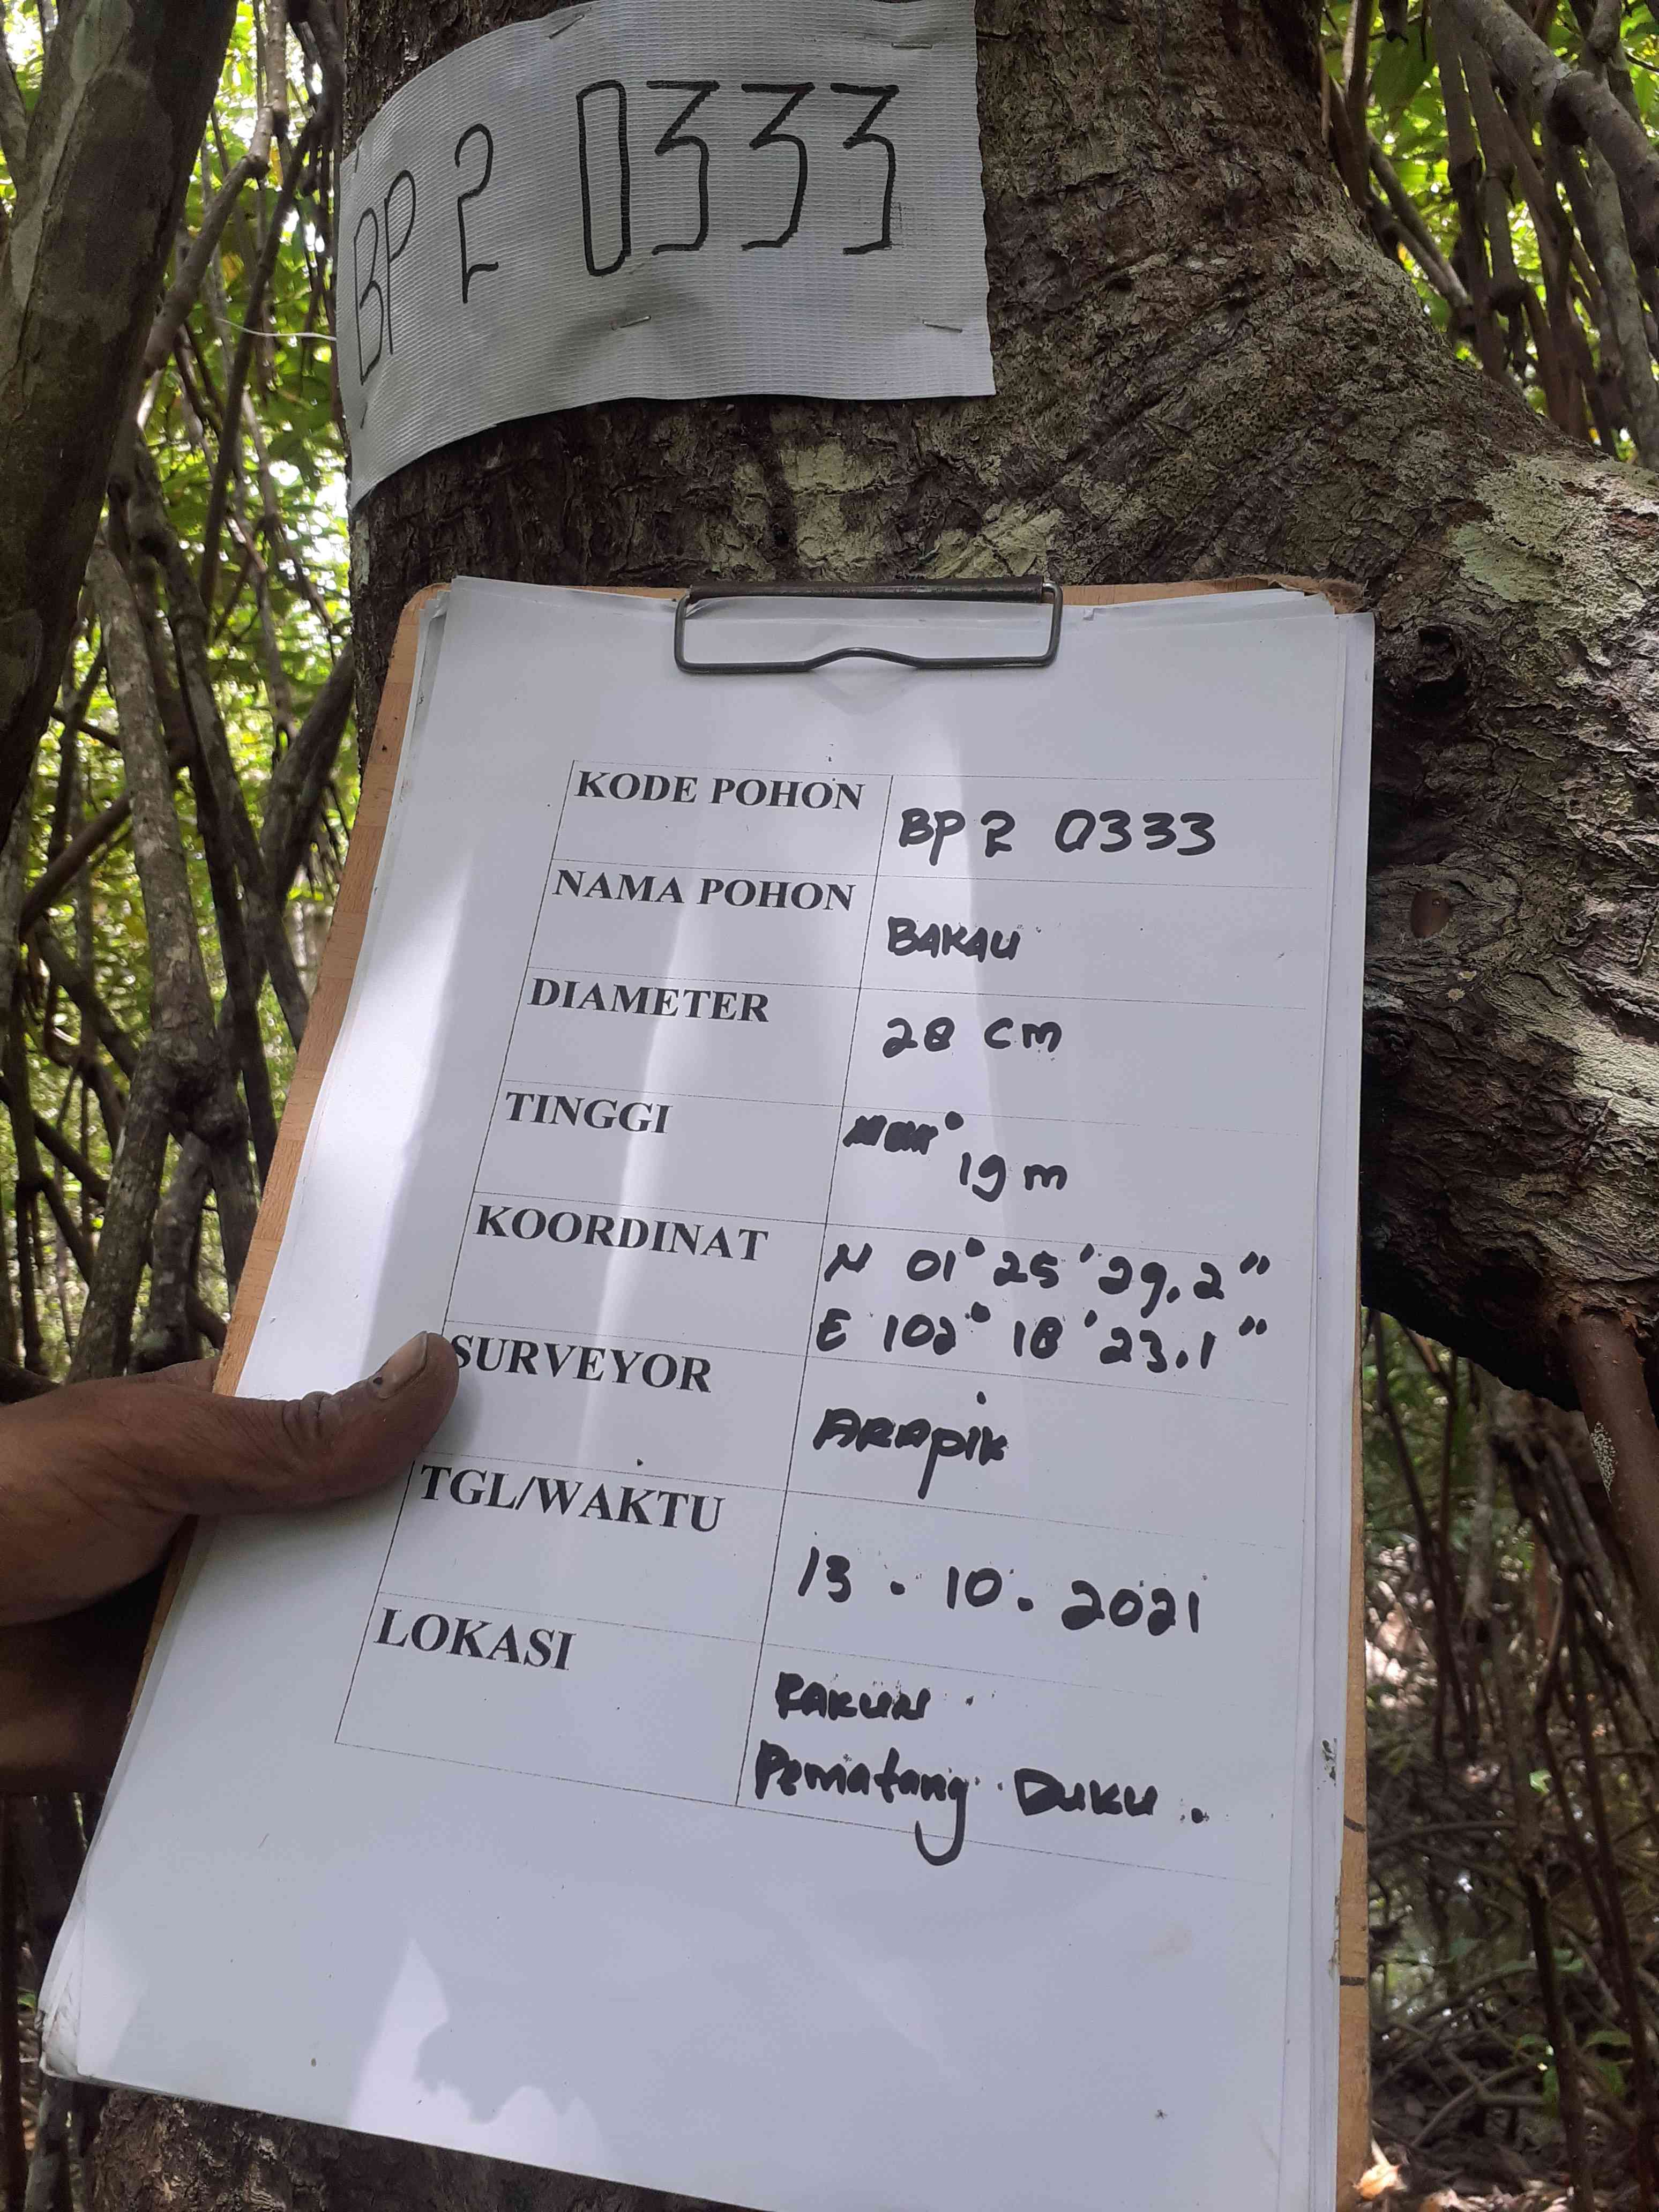 BP 2 0333
KODE POHON
BP 2 0333
NAMA POHON
BAKAU
DIAMETER
28 cm
TINGGI
19 m
KOORDINAT
N 01° 25 ' 29,2 "
E 102° 18 ' 23,1 "
SURVEYOR
ARAPIK
TGL/WAKTU
13 . 10 . 2021
LOKASI
Pematang DUKU .